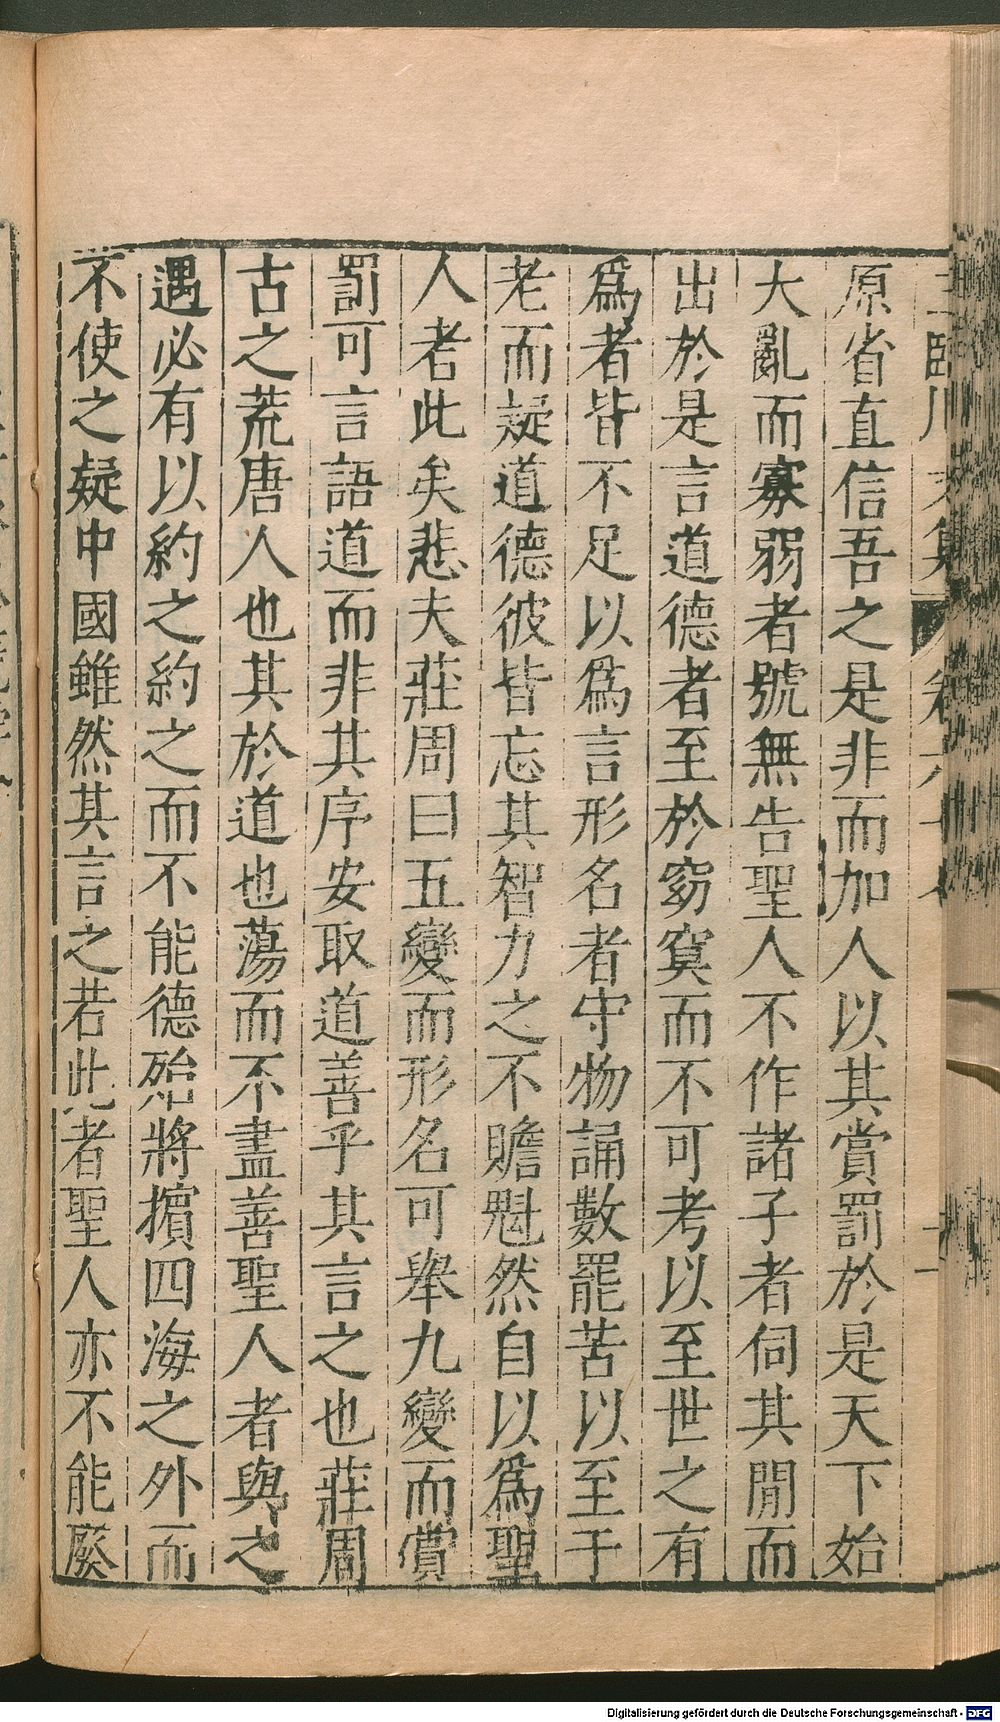 原省直信吾之是非而加人以其賞罰於是天下始
大亂而寡弱者號無告聖人不作諸子者伺其閒而
出於是言道德者至於窈冥而不可考以至世之有
爲者皆不足以爲言形名者守物誦數罷苦以至于
老而疑道德彼皆忘其智力之不贍魁然自以爲聖
人者此矣悲夫莊周曰五變而形名可舉九變而賞
罰可言語道而非其序安取道善乎其言之也莊周
古之荒唐人也其於道也蕩而不盡善聖人者與之
遇必有以約之約之而不能德殆將擯四海之外而
不使之疑中國雖然其言之若此者聖人亦不能廢
Digitalisierung gefördert durch die Deutsche Forschungsgemeinschaft - DFG